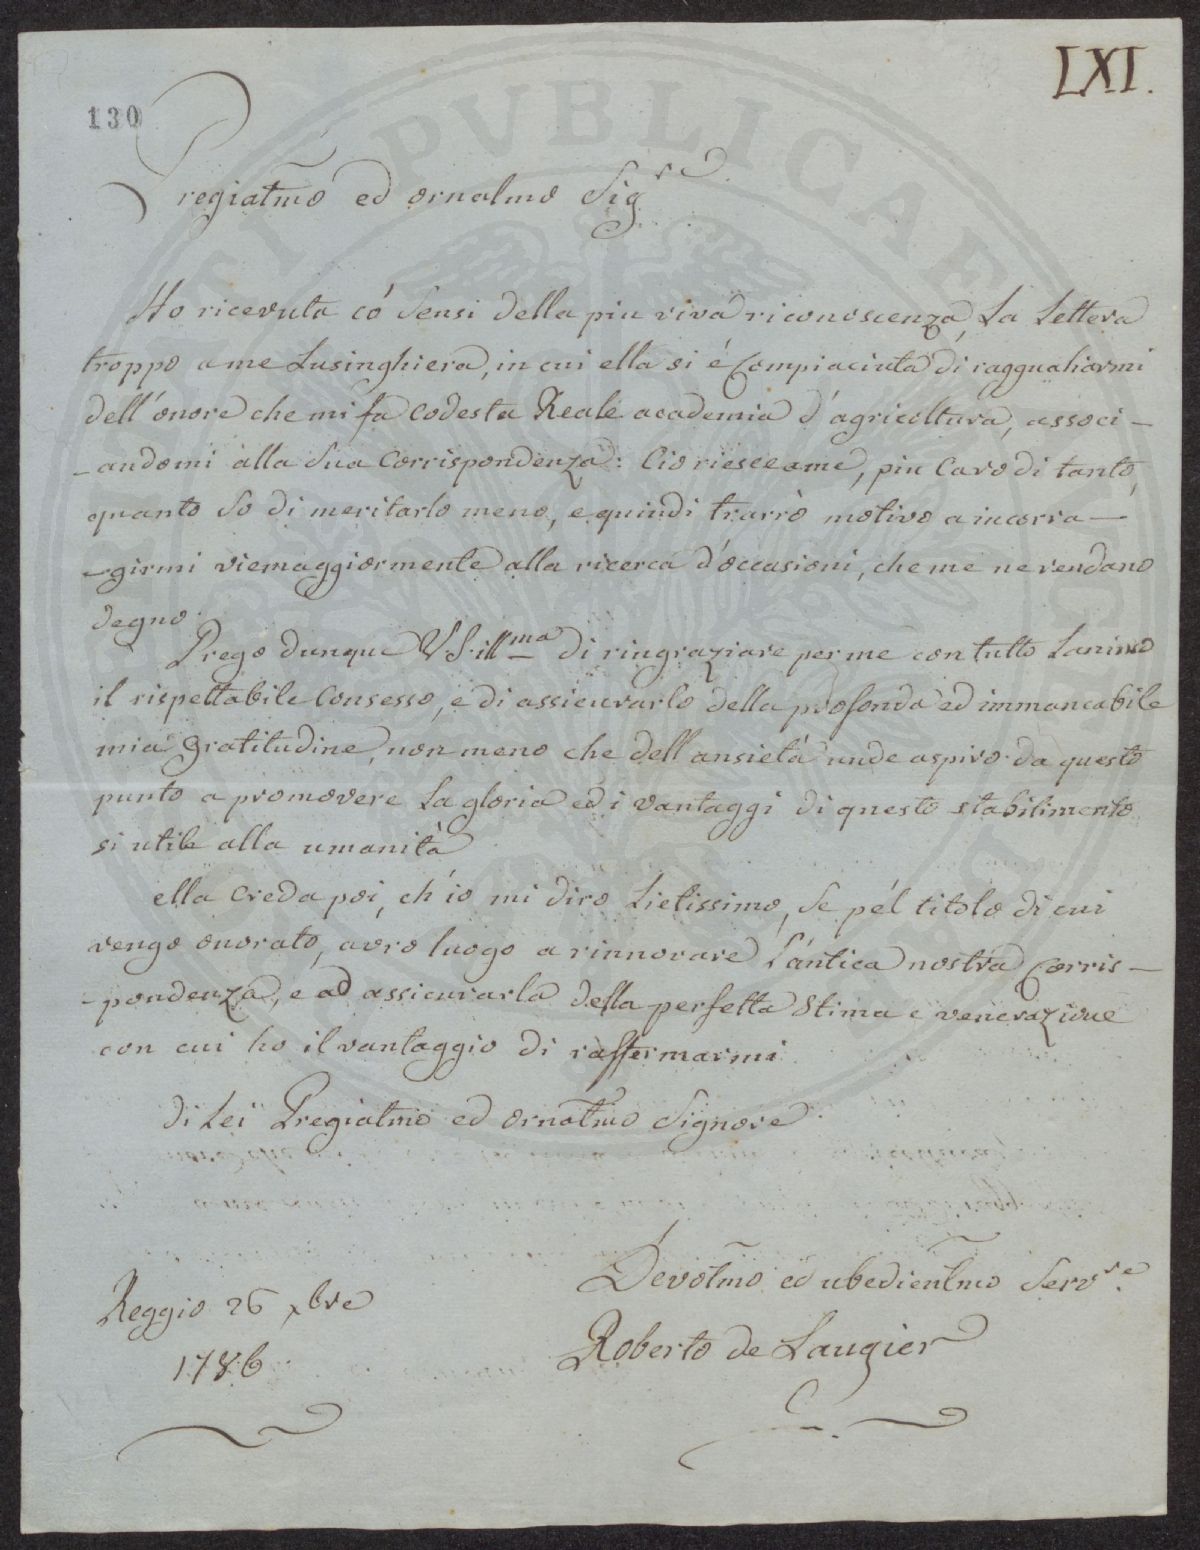 LXI.
130
Pregiatmo ed ornatmo Sigre
Ho ricevuta có Sensi della piu viva riconoscenza, La Lettera
troppo a me Lusinghiera, in cui ella si é Compiaciuta di raggualiarmi
dell'onore che mi fa codesta Reale academia d'agricoltura, associ-
-andomi alla Sua Corrispondenza: Cio riesce a me, piu Caro di tanto,
quanto So di meritarlo meno, e quindi trarrò motivo a incorra-
-girmi viemaggiormente alla ricerca d'occasioni, che me ne rendano
degno.
Prego dunque VS. illma di ringraziare per me con tutto Lanimo
il rispettabile Consesso, e di assicurarlo della profonda ed immancabile
mia gratitudine, non meno che dell'ansietá unde aspiro da questo
punto a promovere La gloria ed i vantaggi di questo stabilimento
si utile alla umanità
ella creda poi, ch'io mi diro Lietissimo, Se pél titolo di cui
vengo onorato, avro luogo a rinnovare L'antica nostra Corris-
-pondenza, e ad assicurarla della perfetta Stima e venerazione
con cui ho il vantaggio di raffermarmi
di Lei Pregiatmo ed ornatmo Signore
Devotmo ed ubedientmo Servre.
Roberto de Laugier
Reggio 26 xbre
1786